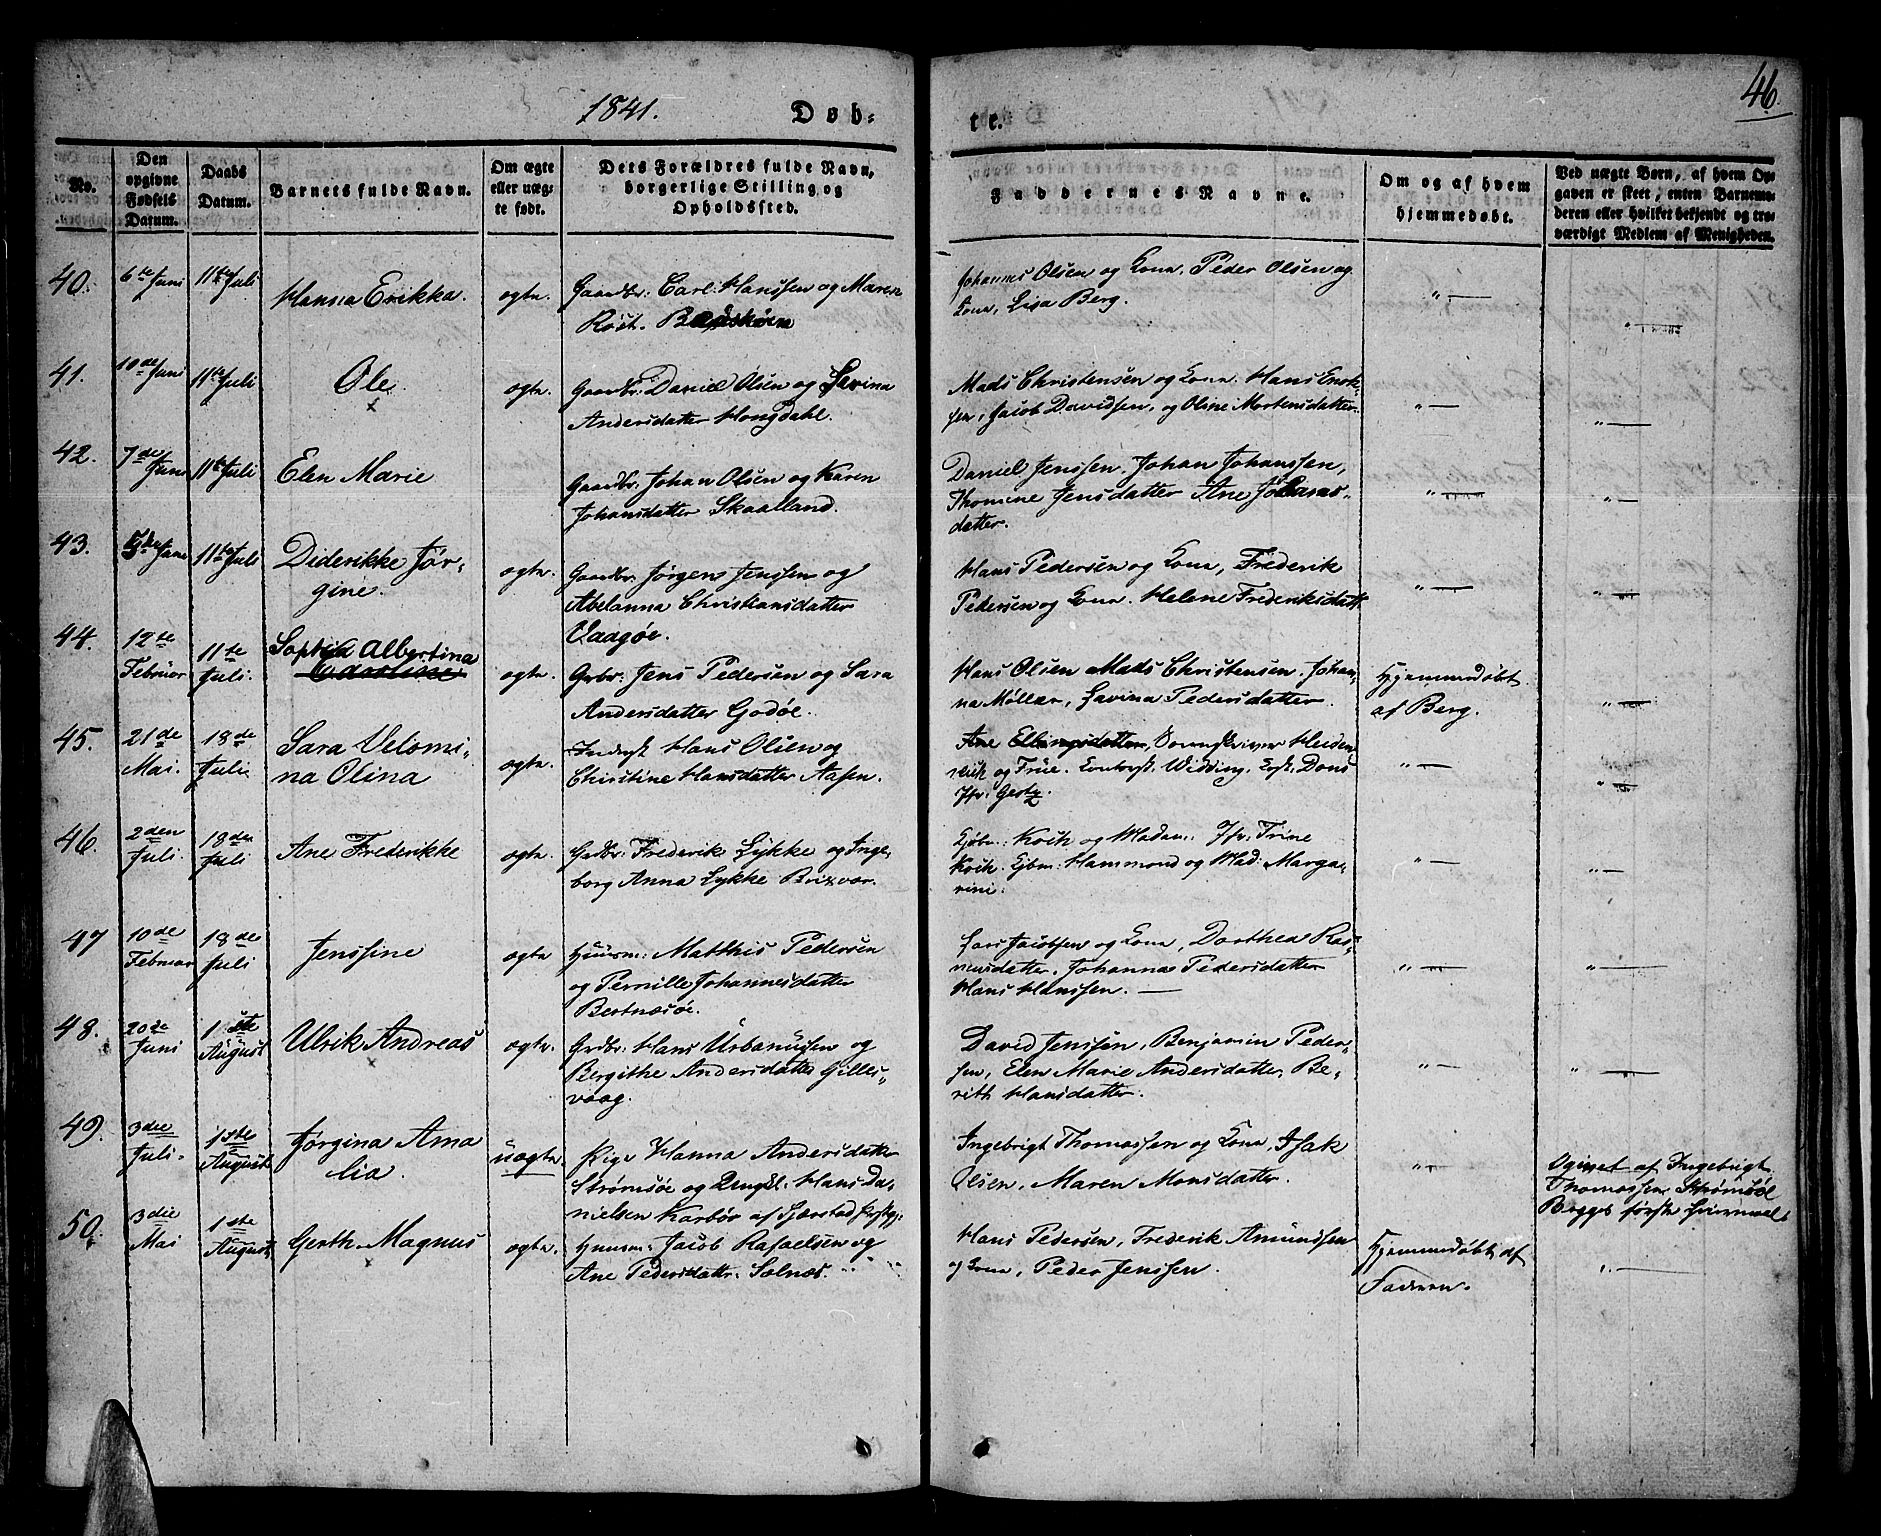 46.
1841. Døb-
te.
No.
Den opgivne Fødsels Datum.
Daabs Datum.
Barnets fulde Navn.
Om ægte eller uæg- te født.
Dets Forældres fulde Navn, borgerlige Stilling og Opholdssted.
Faddernes Navne.
Om og af hvem hjemmedøbt.
Ved uægte Børn, af hvem Op- gaven er skeet, enten Barnemo- deren eller hvilket bekjendt og tro- værdigt Medlem af Menigheden.
40. 6te Juni 11te Juli Hanna Erikka. ægte. Gaardbr: Carl Hanssen og Maren
Röst.
Johannes Olsen og Kona, Peder Olsen og
Kona, Lisa Berg. " — " —
41. 10de Juni 11te Juli Ole. ægte. Gaardbr: Daniel Olsen og Lavina
x
Andersdatter Hongdahl.
Mads Christensen og Kona. Hans Enok-
sen, Jacob Davidsen, og Oline Mortensdatter. " — " —
42. 7de Juni 11te Juli Elen Marie Gaardbr. Johan Olsen og Karen
Johansdatter Skaalland.
Daniel Jenssen, Johan Johanssen,
Thomine Jensdatter Ane Johannes-
datter. " — " —
43. Juni 11te Juli Diderikke Jør-
gine. ægte. Gaardbr. Jørgen Jenssen og
Abelanna Christiansdatter
Vaagøe.
Hans Pedersen og Kona, Frederik
Pedersen og Kona. Helene Frederiksdatt. " — " —
44. 12te Februar 11te Juli. Sophia Albertina
ægte. Grbr: Jens Pedersen og Sara
Andersdatter Godøe.
Hans Olsen Mads Christensen, Johan-
na Møller, Lavina Pedersdatter.
Hjemmedøbt
af Berg. " —
45. 21de Mai. 18de Juli Sara Velomi-
na Olina ægte. Hans Olsen og
Christine Hansdatter Aasen.
Ane Ellingsdatter, Sorenskriver Heiden-
reich og Frue. Widding, Dons
Jfr: " — " —
46. 2den Juli. 18de Juli Ane Frederikke ægte. Grdbr: Frederik Lykke og Inge-
borg Anna Lykke Brixvær.
Kjøbm: Koch og Madam: Jfr: Trine
Koch. Kjbm: Hammond og Mad: Marga-
rini. " — " —
47 10de Februar 18de Juli Jenssine ægte Huusm: Matthis Pedersen
og Pernille Johannesdatter
Bertnæsøe.
Lars Jacobsen og Kona, Dorthea Ras-
musdatter. Johanna Pedersdatter
Hans Hanssen. — " — " —
48. 20de Juni 1ste August Ulrik Andreas ægte. Grdbr: Hans Urbanussen og
x
Bergithe Andersdatter Gilles-
vaag.
David Jenssen, Benjamin Peder-
sen, Elen Marie Andersdatter, Be-
rith Hansdatter. " — " —
49. 3die Juli. 1ste August Jørgina Ama
lia. uægte. Pige Hanna Andersdatter
Strømsøe og Ungkl: Hans Da-
nielsen Karbøe af Skjærstad
Ingebrigt Thomassen og Kona, Isak
Olsen, Maren Monsdatter. " —
Opgivet af Ingebrigt
Thomassen Strømsøe
50. 3die Mai 1ste August Gerth Magnus ægte. Huusm: Jacob Rafaelsen og
x
Ane Pedersdatter Solnæs.
Hans Pedersen, Frederik Amundsen
og Kona, Peder Jenssen.
Hjemmedøbt af
Faderen. " —